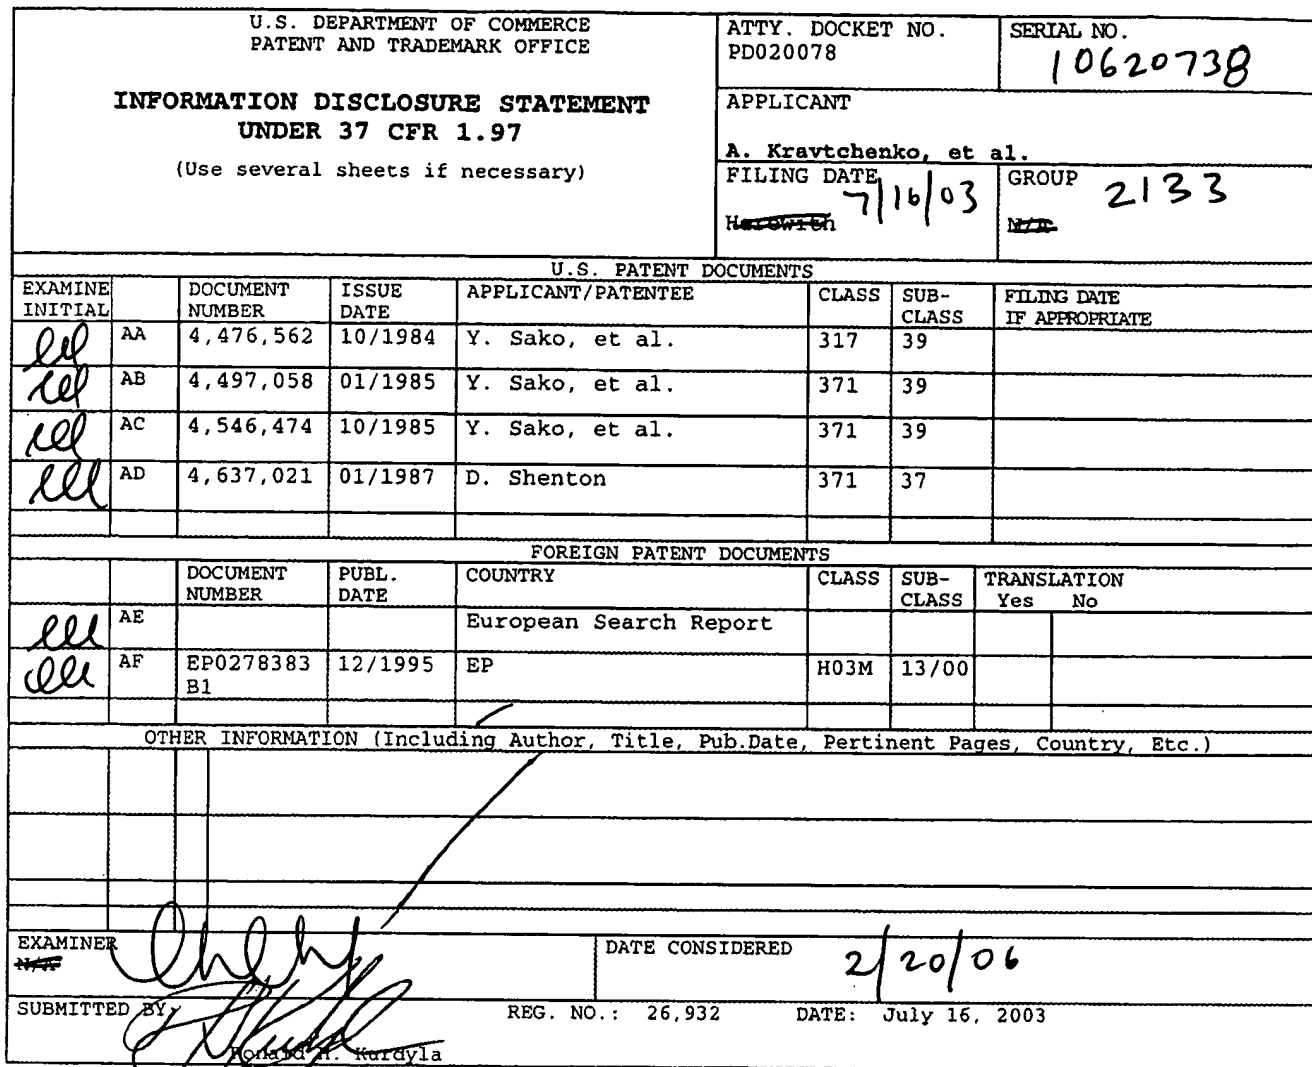 U.S. DEPARTMENT OF COMMERCE
PATENT AND TRADEMARK OFFICE
INFORMATION DISCLOSURE STATEMENT
UNDER 37 CFR 1.97
(Use several sheets if necessary)
ATTY. DOCKET NO.
PD020078
SERIAL NO.
10620738
APPLICANT
A. Kravtchenko, et al.
FILING DATE
7/16/03
Herewith
GROUP
2133
N/A
U.S. PATENT DOCUMENTS
EXAMINE INITIAL DOCUMENT NUMBER ISSUE DATE APPLICANT/PATENTEE CLASS SUB-CLASS FILING DATE IF APPROPRIATE
AA 4,476,562 10/1984 Y. Sako, et al. 317 39
AB 4,497,058 01/1985 Y. Sako, et al. 371 39
AC 4,546,474 10/1985 Y. Sako, et al. 371 39
AD 4,637,021 01/1987 D. Shenton 371 37
FOREIGN PATENT DOCUMENTS
DOCUMENT NUMBER PUBL. DATE COUNTRY CLASS SUB-CLASS TRANSLATION Yes No
AE European Search Report
AF EP0278383 B1 12/1995 EP H03M 13/00
OTHER INFORMATION (Including Author, Title, Pub.Date, Pertinent Pages, Country, Etc.)
EXAMINER
N/A
DATE CONSIDERED 2/20/06
SUBMITTED BY: REG. NO.: 26,932 DATE: July 16, 2003
Ronald H. Kurdyla